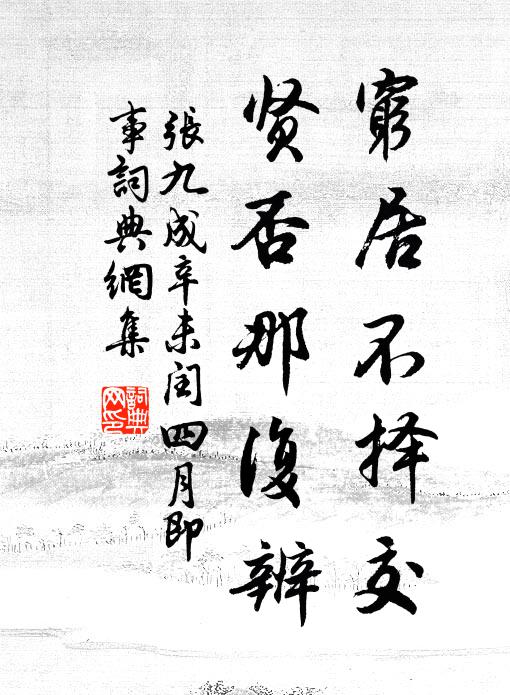 窮居不择交
贤否那復辨
張九成辛未閏四月即
事詞典網集
詞典
网印